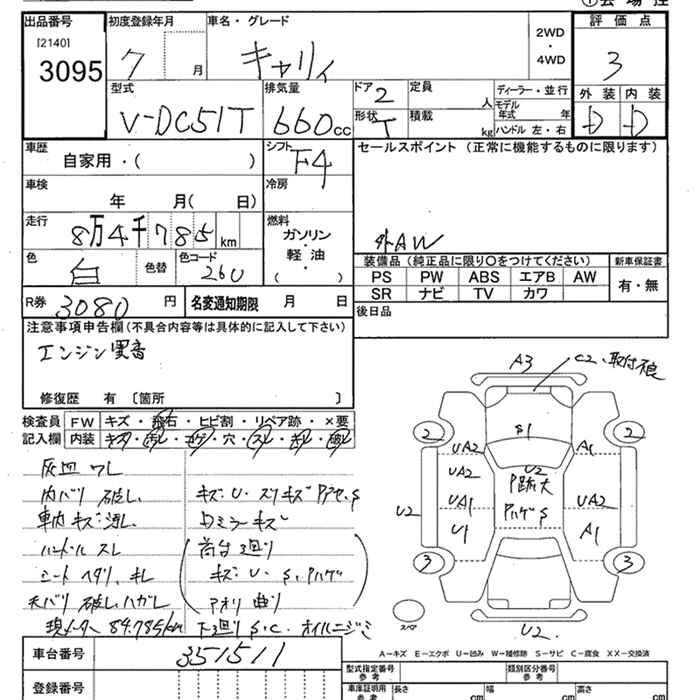 出品番号 初度登録年月 車名・グレード 2WD・4WD 評価点
[2140]
3095 7 月 キャリィ 3
外装 内装
D D
型式 排気量 ドア 2 定員 人 ディーラー・並行
V-DC51T 660cc 形状 T 積載 kg モデル年式 年
ハンドル 左・右
車歴 シフト F4 セールスポイント (正常に機能するものに限ります)
自家用・( )
車検 冷房
年 月( 日)
走行 燃料
8万4千785km ガソリン・軽油・( )
外AW
色 白 色替 色コード 260
装備品 (純正品に限り○をつけてください) 新車保証書
PS PW ABS エアB AW 有・無
SR ナビ TV カワ
R券 3080 円 名変通知期限 月 日 後日品
注意事項申告欄(不具合内容等は具体的に記入して下さい)
エンジン異音
修復歴 有 〔箇所 〕
検査員記入欄 FW キズ・飛石・ヒビ割・リペア跡・×要
内装 キズ・汚レ・コゲ・穴・スレ・キレ・破レ
灰皿ワレ
内バリ 破レ
車内キズ・汚レ
ハンドルスレ
シートヘタリ、キレ
天バリ 破レ ハガレ
現メーター 84.785km
キズ・U・スリキズ Pアセ、S
Dミラーキズ
荷台廻り
キズ・U・S、Pハゲ
アオリ曲り
下廻りS・C・オイルニジミ
A3 C2、取付不良
2 2
S1
UA2 A1
U2
UA2
P跡大
UA1 UA2
PハゲS
U2
U1 A1
3 3
スペア
U2
A-キズ E-エクボ U-凹み W-補修跡 S-サビ C-腐食 XX-交換済
車台番号 351511
登録番号
型式指定番号 参考 類別区分番号 参考
車庫証明用 参考 長さ cm 幅 cm 高さ cm